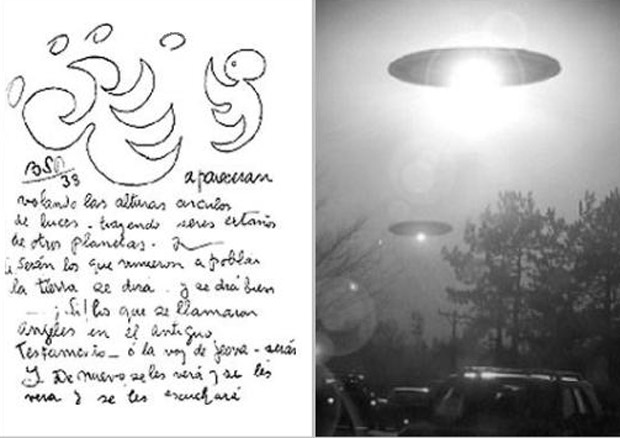 BSP
38
apareceran
volando las alturas circulos
de luces - trayendo seres extraños
de otros planetas. Y
serán los que vinieron a poblar
la tierra se dira - y se dirá bien
- ¡Si! los que se llamaron
angeles en el antiguo
Testamento - ó la voz de Jeova - serás
Y De nuevo se les verá y se les
vera y se les escuchará